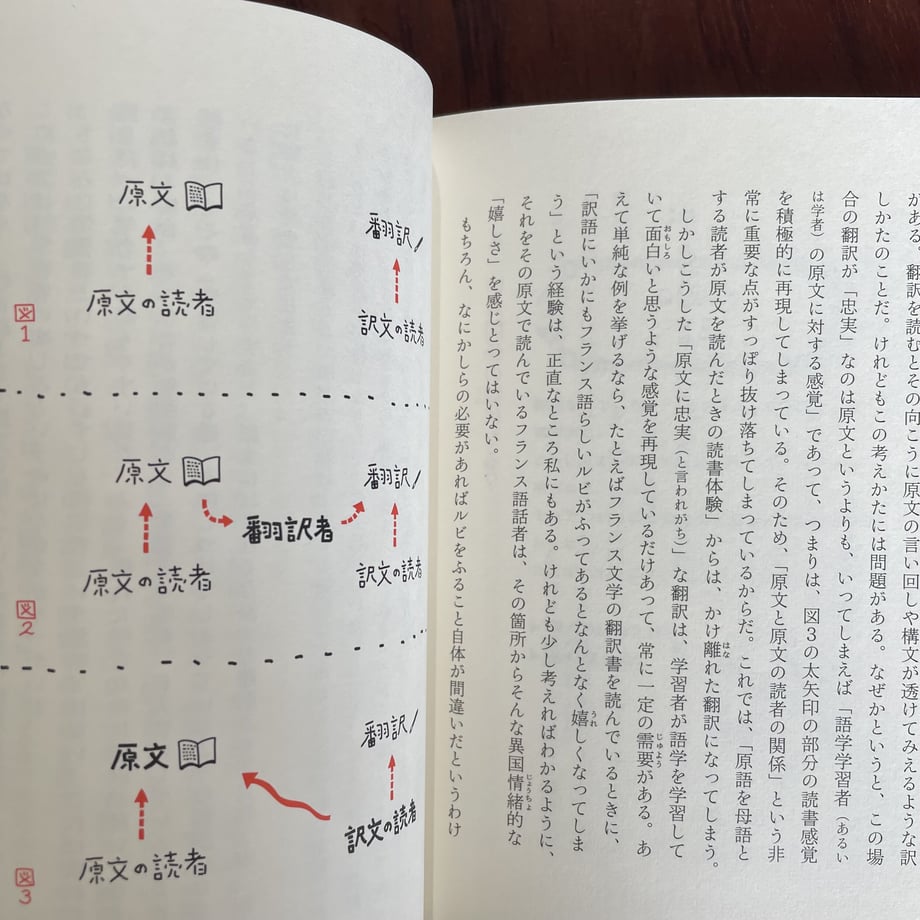 がある。翻訳を読むとその向こうに原文の言い回しや構文が透けてみえるような訳
しかたのことだ。けれどもこの考えかたには問題がある。なぜかというと、この場
合の翻訳が「忠実」なのは原文というよりも、いってしまえば「語学学習者（あるい
は学者）の原文に対する感覚」であって、つまりは、図3の太矢印の部分の読書感覚
を積極的に再現してしまっている。そのため、「原文と原文の読者の関係」という非
常に重要な点がすっぽり抜け落ちてしまっているからだ。これでは、「原語を母語と
する読者が原文を読んだときの読書体験」からは、かけ離れた翻訳になってしまう。
しかしこうした「原文に忠実（と言われがち）」な翻訳は、学習者が語学を学習して
いて面白いと思うような感覚を再現しているだけあって、常に一定の需要がある。あ
えて単純な例を挙げるなら、たとえばフランス文学の翻訳書を読んでいるときに、
「訳語にいかにもフランス語らしいルビがふってあるとなんとなく嬉しくなってしま
う」という経験は、正直なところ私にもある。けれども少し考えればわかるように、
それをその原文で読んでいるフランス語話者は、その箇所からそんな異国情緒的な
「嬉しさ」を感じとってはいない。
もちろん、なにかしらの必要があればルビをふること自体が間違いだというわけ
原文
翻訳
原文の読者
訳文の読者
図1
原文
翻訳
翻訳者
原文の読者
訳文の読者
図2
原文
翻訳
訳文の読者
原文の読者
図3